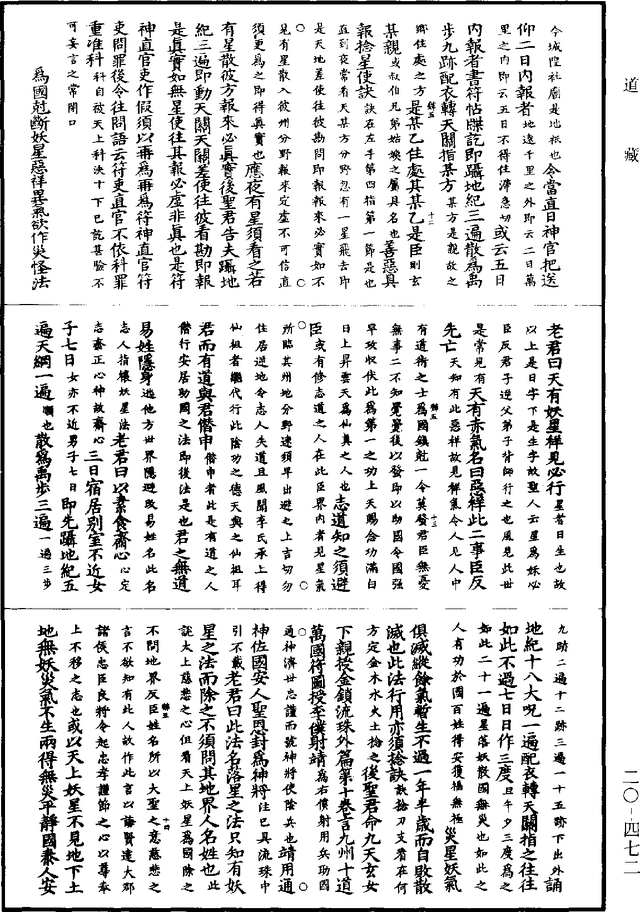 道藏
今城隍社廟是地祇也令當直日神官把送
仰二日内報者地遠千里之外即云二日萬里之内即云五日不得住滯急切或云五日
内報者書符帖牒訖即躡地紀三遍散為禹
步九跡配衣轉天關指某方某方是觀故之
鄉住處之方是某乙住處其某乙是臣則玄
某親或叔伯兄弟姑姨之屬具名也善惡具
報捻星使訣訣在左手第四指第一節是也
直到夜常看天某方分野忽有一星飛去即
是天地差使往彼勘問即報報來必實如不
見有星散入彼州分野報來定虛不可信直
須更為之即得真實也應夜有星須看之若
有星散彼方報來必真實後聖君告夫躡地
紀三遍即動天關天關差使往彼看勘即報
是真實如無星使往其報必虛非真也是符
神直官吏作假須以冊為冊為符神直官符
吏問罪後令往問語云符吏直官不依科罪
重准科科自彼天上科決十下已訖甚驗不可妄言之常閉口
為國剋斷妖星惡祥異氣欲作災怪法
老君曰天有妖星祥見必行星者日生也故
以上是日字下是生字故聖人云星為妖必
臣反君子逆父弟子背師行之也風見此世
是常見有天有赤氣名曰惡祥此二事臣反
先亡天知有此惡祥故見祥氣令人見人中
有道術之士為國鎮射一令莫發君臣無憂
無事二不知覺覺後以發即以助國令國強
早攻收伏此為第一之功上天賜念功滿白
日上昇雲天為仙真之人也志道知之須避
臣或有修志道之人在此臣界内者見星氣
所臨其州地分野速須早出避之上言切勿
住居逆地令志人失道且風聞李氏承上得
仙祖者繼代行此陰功之德天與之仙祖耳
君而有道與君僭申僭申者此是有道之人
僭行安居助國之法即後法是也君之無道
易姓隱身逃他方世界隱避改易姓名此名
志人指禳妖星法老君曰以素食齋心心定
志齋正心神故齋心三日宿居別室不近女
子七日女亦不近男子七日即先躡地紀五
遍天綱一遍順也散為禹步三遍一遍三步
九跡二遍十二跡三遍一十五跡下出外誦
地紀十八大呪一遍配衣轉天關指之往往
如此不過七日日作三度旦午夕三度為之
如此二十一遍星落妖散國無災也如此之
人有功於國百姓得安獲福無極災星妖氣
俱滅縱餘氣暫生不過一年半歲而自敗散
滅也此法行用亦須捻訣訣捻刀支看在何
方定金木水火土捻之後聖君命九天玄女
下親授金鎖流珠外篇第十卷言九州十道
萬國符圖授李僕射靖為右僕射用兵功國
通神濟世忠謹而號神將使陰兵也靖用通
神佐國安人聖恩封為神將注已具流珠中
引不載老君曰此法名落星之法只知有妖
星之法而除之不須問其地界人名姓也此
說太上慈悲之心但看天上妖星為國除之
不問地界反臣姓名所以大聖之意慈悲之
言不欲知有此人故作此言以論賢達大郡
諸侯忠臣良將令起忠孝謹節之心以尊奉
上不移之志也或以天上妖星不見地下土
地無妖災氣不生兩得無災平靜國泰人安
二〇-四七二